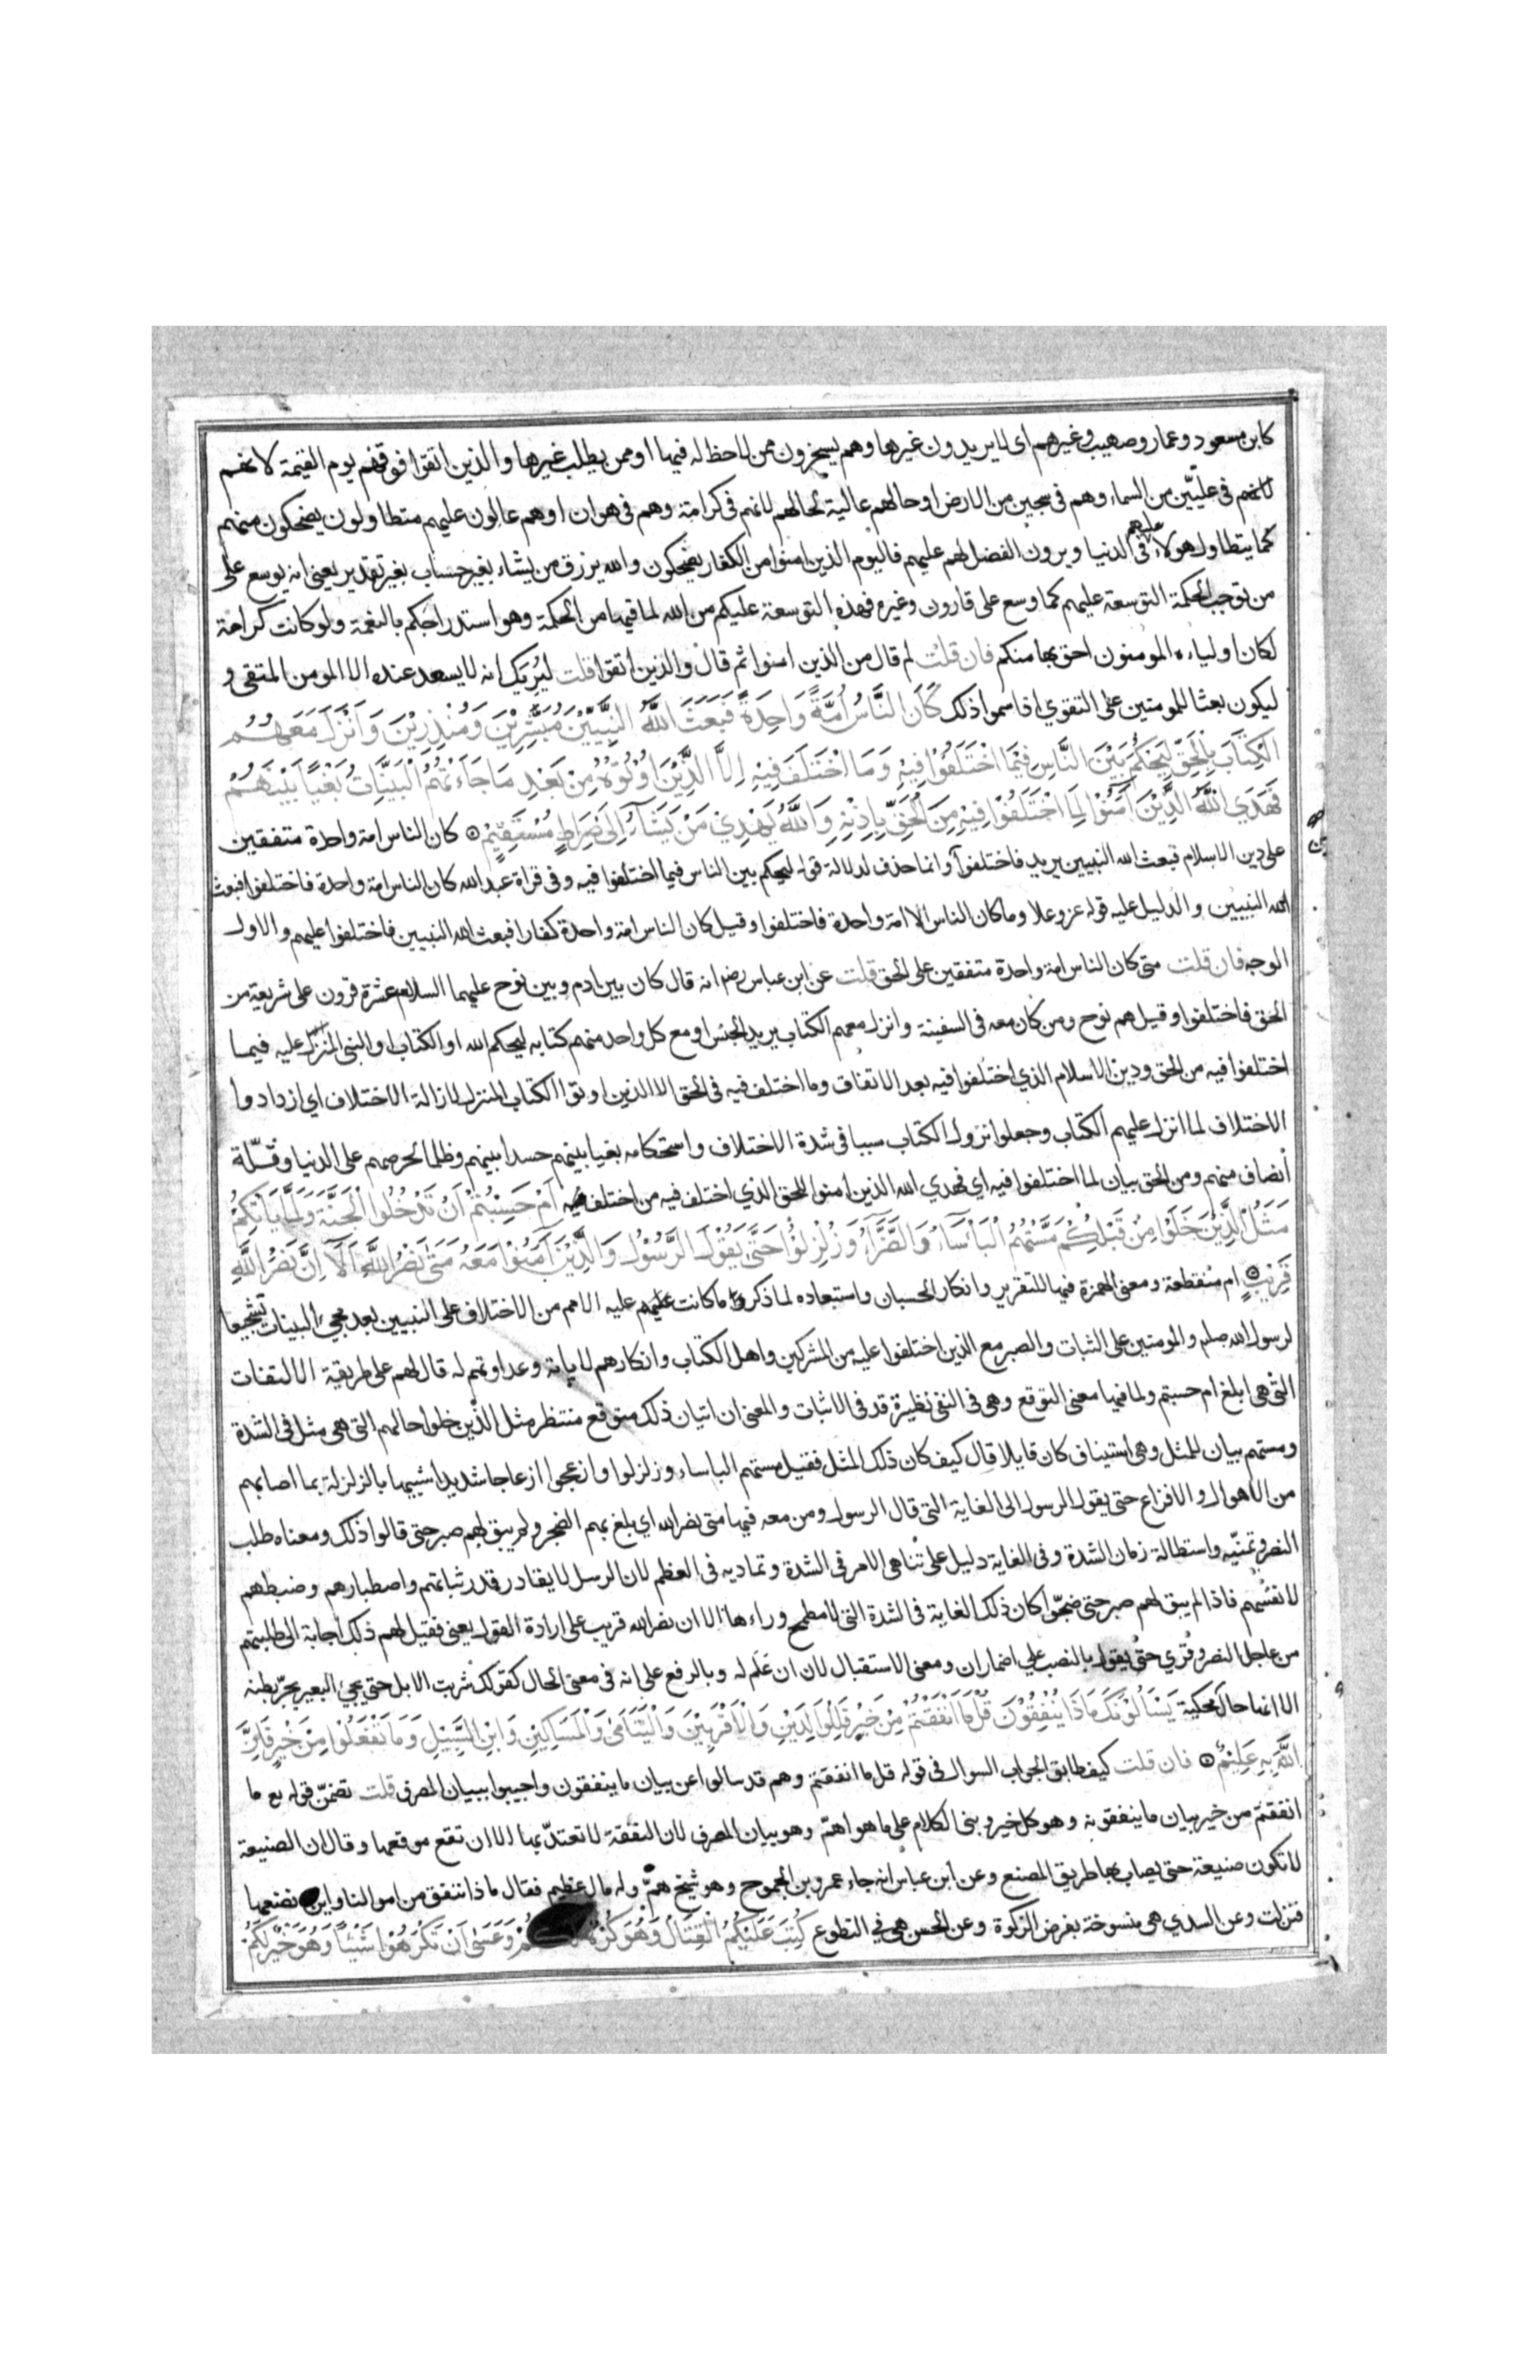 كابن مسعود وعمار وصهيب وغيرهم اى لا يريدون غيرها وهم يسخرون ممن لا حظ له فيها او ممن يطلب غيرها والذين اتقوا فوقهم يوم القيمة لانهم
لانهم فى عليّين من السماء وهم فى سجين من الارض او حالهم عالية لحالهم لانهم فى كرامة وهم فى هوان او هم عالون عليهم متطاولون يضحكون منهم
كما يتطاول هولاء عليهم فى الدنيا ويرون الفضل لهم عليهم فاليوم الذين امنوا من الكفار يضحكون والله يرزق من يشاء بغير حساب بغير تقدير يعنى انه يوسع على
من توجب الحكمة التوسعة عليهم كما وسع على قارون وغيره فهذه التوسعة عليكم من الله لما فيها من الحكمة وهو استدراجكم بالنعمة ولو كانت كرامة
لكان اولياءه المومنون احق بها منكم فان قلت لم قال من الذين امنوا ثم قال والذين اتقوا قلت ليُريَك انه لا يسعد عنده الا المومن المتقى و
ليكون بعثا للمومنين على التقوي اذا سمعوا ذلك كَانَ النَّاسُ اُمَّةً وَاحِدَةً فَبَعَثَ اللَّهُ النَّبِيِّيْنَ مُبَشِّرِيْنَ وَمُنْذِرِيْنَ وَاَنْزَلَ مَعَهُمُ
الْكِتَابَ بِالْحَقِّ لِيَحْكُمَ بَيْنَ النَّاسِ فِيْمَا اخْتَلَفُوْا فِيْهِ وَمَا اخْتَلَفَ فِيْهِ اِلاَّ الَّذِيْنَ اُوْتُوْهُ مِنْ بَعْدِ مَا جَاءَتْهُمُ الْبَيِّنَاتُ بَغْياً بَيْنَهُمْ
فَهَدَي اللَّهُ الَّذِيْنَ آمَنُوْا لِمَا اخْتَلَفُوْا فِيْهِ مِنَ الْحَقِّ بِاِذْنِهِ وَاللَّهُ يَهْدِيْ مَنْ يَشَآءُ اِلٰى صِرَاطٍ مُسْتَقِيْمٍ كان الناس امة واحدة متفقين
على دين الاسلام فبعث الله النبيين يريد فاختلفوا وانما حذف لدلالة قوله ليحكم بين الناس فيما اختلفوا فيه وفى قراة عبد الله كان الناس امة واحدة فاختلفوا فبعث
الله النبيين والدليل عليه قوله عز وعلا وما كان الناس الا امة واحدة فاختلفوا وقيل كان الناس امة واحدة كفارا فبعث الله النبيين فاختلفوا عليهم والاول
الوجه فان قلت متى كان الناس امة واحدة متفقين على الحق قلت عن ابن عباس رضه انه قال كان بين ادم وبين نوح عليهما السلام عشرة قرون على شريعة من
الحق فاختلفوا وقيل هم نوح ومن كان معه فى السفينة وانزل معهم الكتاب يريد الجنس او مع كل واحد منهم كتابه ليحكم الله او الكتاب او النبى المنزل عليه فيما
اختلفوا فيه من الحق ودين الاسلام الذي اختلفوا فيه بعد الاتفاق وما اختلف فيه فى الحق الا الذين اوتوا الكتاب المنزل لازالة الاختلاف اي ازدادوا
الاختلاف لما انزل عليهم الكتاب وجعلوا نزول الكتاب سببا فى شدة الاختلاف واستحكامه بغيا بينهم حسدا بينهم وظلما لحرصهم على الدنيا وقلّة
انصاف منهم ومن الحق بيان لما اختلفوا فيه اي فهدي الله الذين امنوا للحق الذي اختلف فيه من اختلف فيه اَمْ حَسِبْتُمْ اَنْ تَدْخُلُوا الْجَنَّةَ وَلَمَّا يَاْتِكُمْ
مَثَلُ الَّذِيْنَ خَلَوْا مِنْ قَبْلِكُمْ مَسَّتْهُمُ الْبَاْسَآءُ وَالضَّرَّآءُ وَزُلْزِلُوْا حَتّٰى يَقُوْلَ الرَّسُوْلُ وَالَّذِيْنَ آمَنُوْا مَعَهُ مَتٰى نَصْرُ اللَّهِ اَلَآ اِنَّ نَصْرَ اللَّهِ
قَرِيْبٌ ام منقطعة ومعنى الهمزة فيها للتقرير وانكار الحسبان واستبعاده لما ذكر ما كانت عليه الامم من الاختلاف على النبيين بعد مجيء البينات تشجيعا
لرسول الله صلم والمومنين على الثبات والصبر مع الذين اختلفوا عليه من المشركين واهل الكتاب وانكارهم لاياته وعداوتهم له قال لهم على طريقة الالتفات
التى هى ابلغ ام حسبتم ولما فيها معنى التوقع وهى فى النفى نظيرة قد فى الاثبات والمعنى ان اتيان ذلك متوقع منتظر مثل الذين خلوا حالهم التى هى مثل فى الشدة
ومستهم بيان للمثل وهى استيناف كان قايلا قال كيف كان ذلك المثل فقيل مستهم الباساء وزلزلوا وازعجوا ازعاجا شديدا شبيها بالزلزلة بما اصابهم
من الاهوال والافزاع حتى يقول الرسول الى الغاية التى قال الرسول ومن معه فيها متى نصر الله اي بلغ بهم الضجر ولم يبق لهم صبر حتى قالوا ذلك ومعناه طلب
النصر وتمنيّه واستطالة زمان الشدة وفى الغاية دليل على تناهى الامر فى الشدة وتماديه فى العظم لان الرسل لا يقادر قدر ثباتهم واصطبارهم وضبطهم
لانفسهم فاذا لم يبق لهم صبر حتى ضجّوا كان ذلك الغاية فى الشدة التى لا مطمح وراءها الا ان نصر الله قريب على ارادة القول يعنى فقيل لهم ذلك اجابة الى طلبتهم
من عاجل النصر وقري حتى يقول بالنصب على اضمار ان ومعنى الاستقبال لان ان عَلَم له وبالرفع على انه فى معنى الحال كقولك شربت الابل حتى يجيء البعير يجرّ بطنه
الا انها حال محكية يَسْاَلُوْنَكَ مَاذَا يُنْفِقُوْنَ قُلْ مَا اَنْفَقْتُمْ مِنْ خَيْرٍ فَلِلْوَالِدَيْنِ وَالْاَقْرَبِيْنَ وَالْيَتَامٰى وَالْمَسَاكِيْنِ وَابْنِ السَّبِيْلِ وَمَا تَفْعَلُوْا مِنْ خَيْرٍ فَاِنَّ
اللَّهَ بِهِ عَلِيْمٌ فان قلت كيف طابق الجواب السوال فى قوله قل ما انفقتم وهم قد سالوا عن بيان ما ينفقون واجيبوا ببيان المصرف قلت تضمّن قوله تع ما
انفقتم من خير بيان ما ينفقونه وهو كل خير وبنى الكلام على ما هو اهمّ وهو بيان المصرف لان النفقة لا تعتدّ بها الا ان تقع موقعها وقال ان الصنيعة
لا تكون صنيعة حتى يصاب بها طريق المصنع وعن ابن عباس انه جاء عمرو بن الجموح وهو شيخ همّ وله مال عظيم فقال ماذا ننفق من اموالنا واين نضعها
فنزلت وعن السدي هى منسوخة بفرض الزكوة وعن الحسن هى في التطوع كُتِبَ عَلَيْكُمُ الْقِتَالُ وَهُوَ كُرْهٌ وَعَسٰى اَنْ تَكْرَهُوْا شَيْئاً وَهُوَ خَيْرٌ لَكُمْ